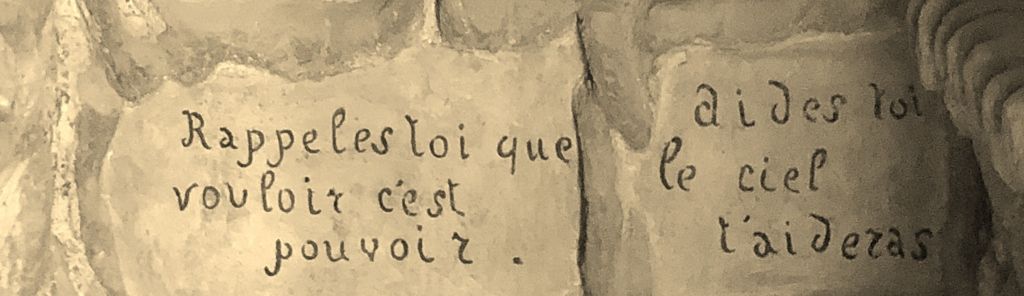 Rappeles toi que
vouloir c'est
pouvoir.
aides toi
le ciel
t'aideras